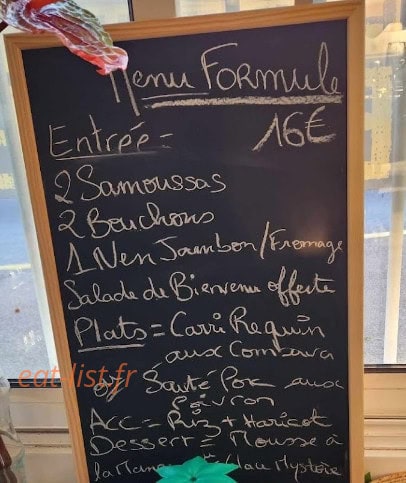 Menu Formule
16€
Entrée =
2 Samoussas
2 Bouchons
1 Nen Jambon/Fromage
Salade de Bienvenu offerte
Plats = Carri Requin
aux Combava
eatlist.fr
Sauté Porc aux
Poivron
Acc = Riz + Haricot
Dessert = Mousse à
la Mangue/Glace Mystère